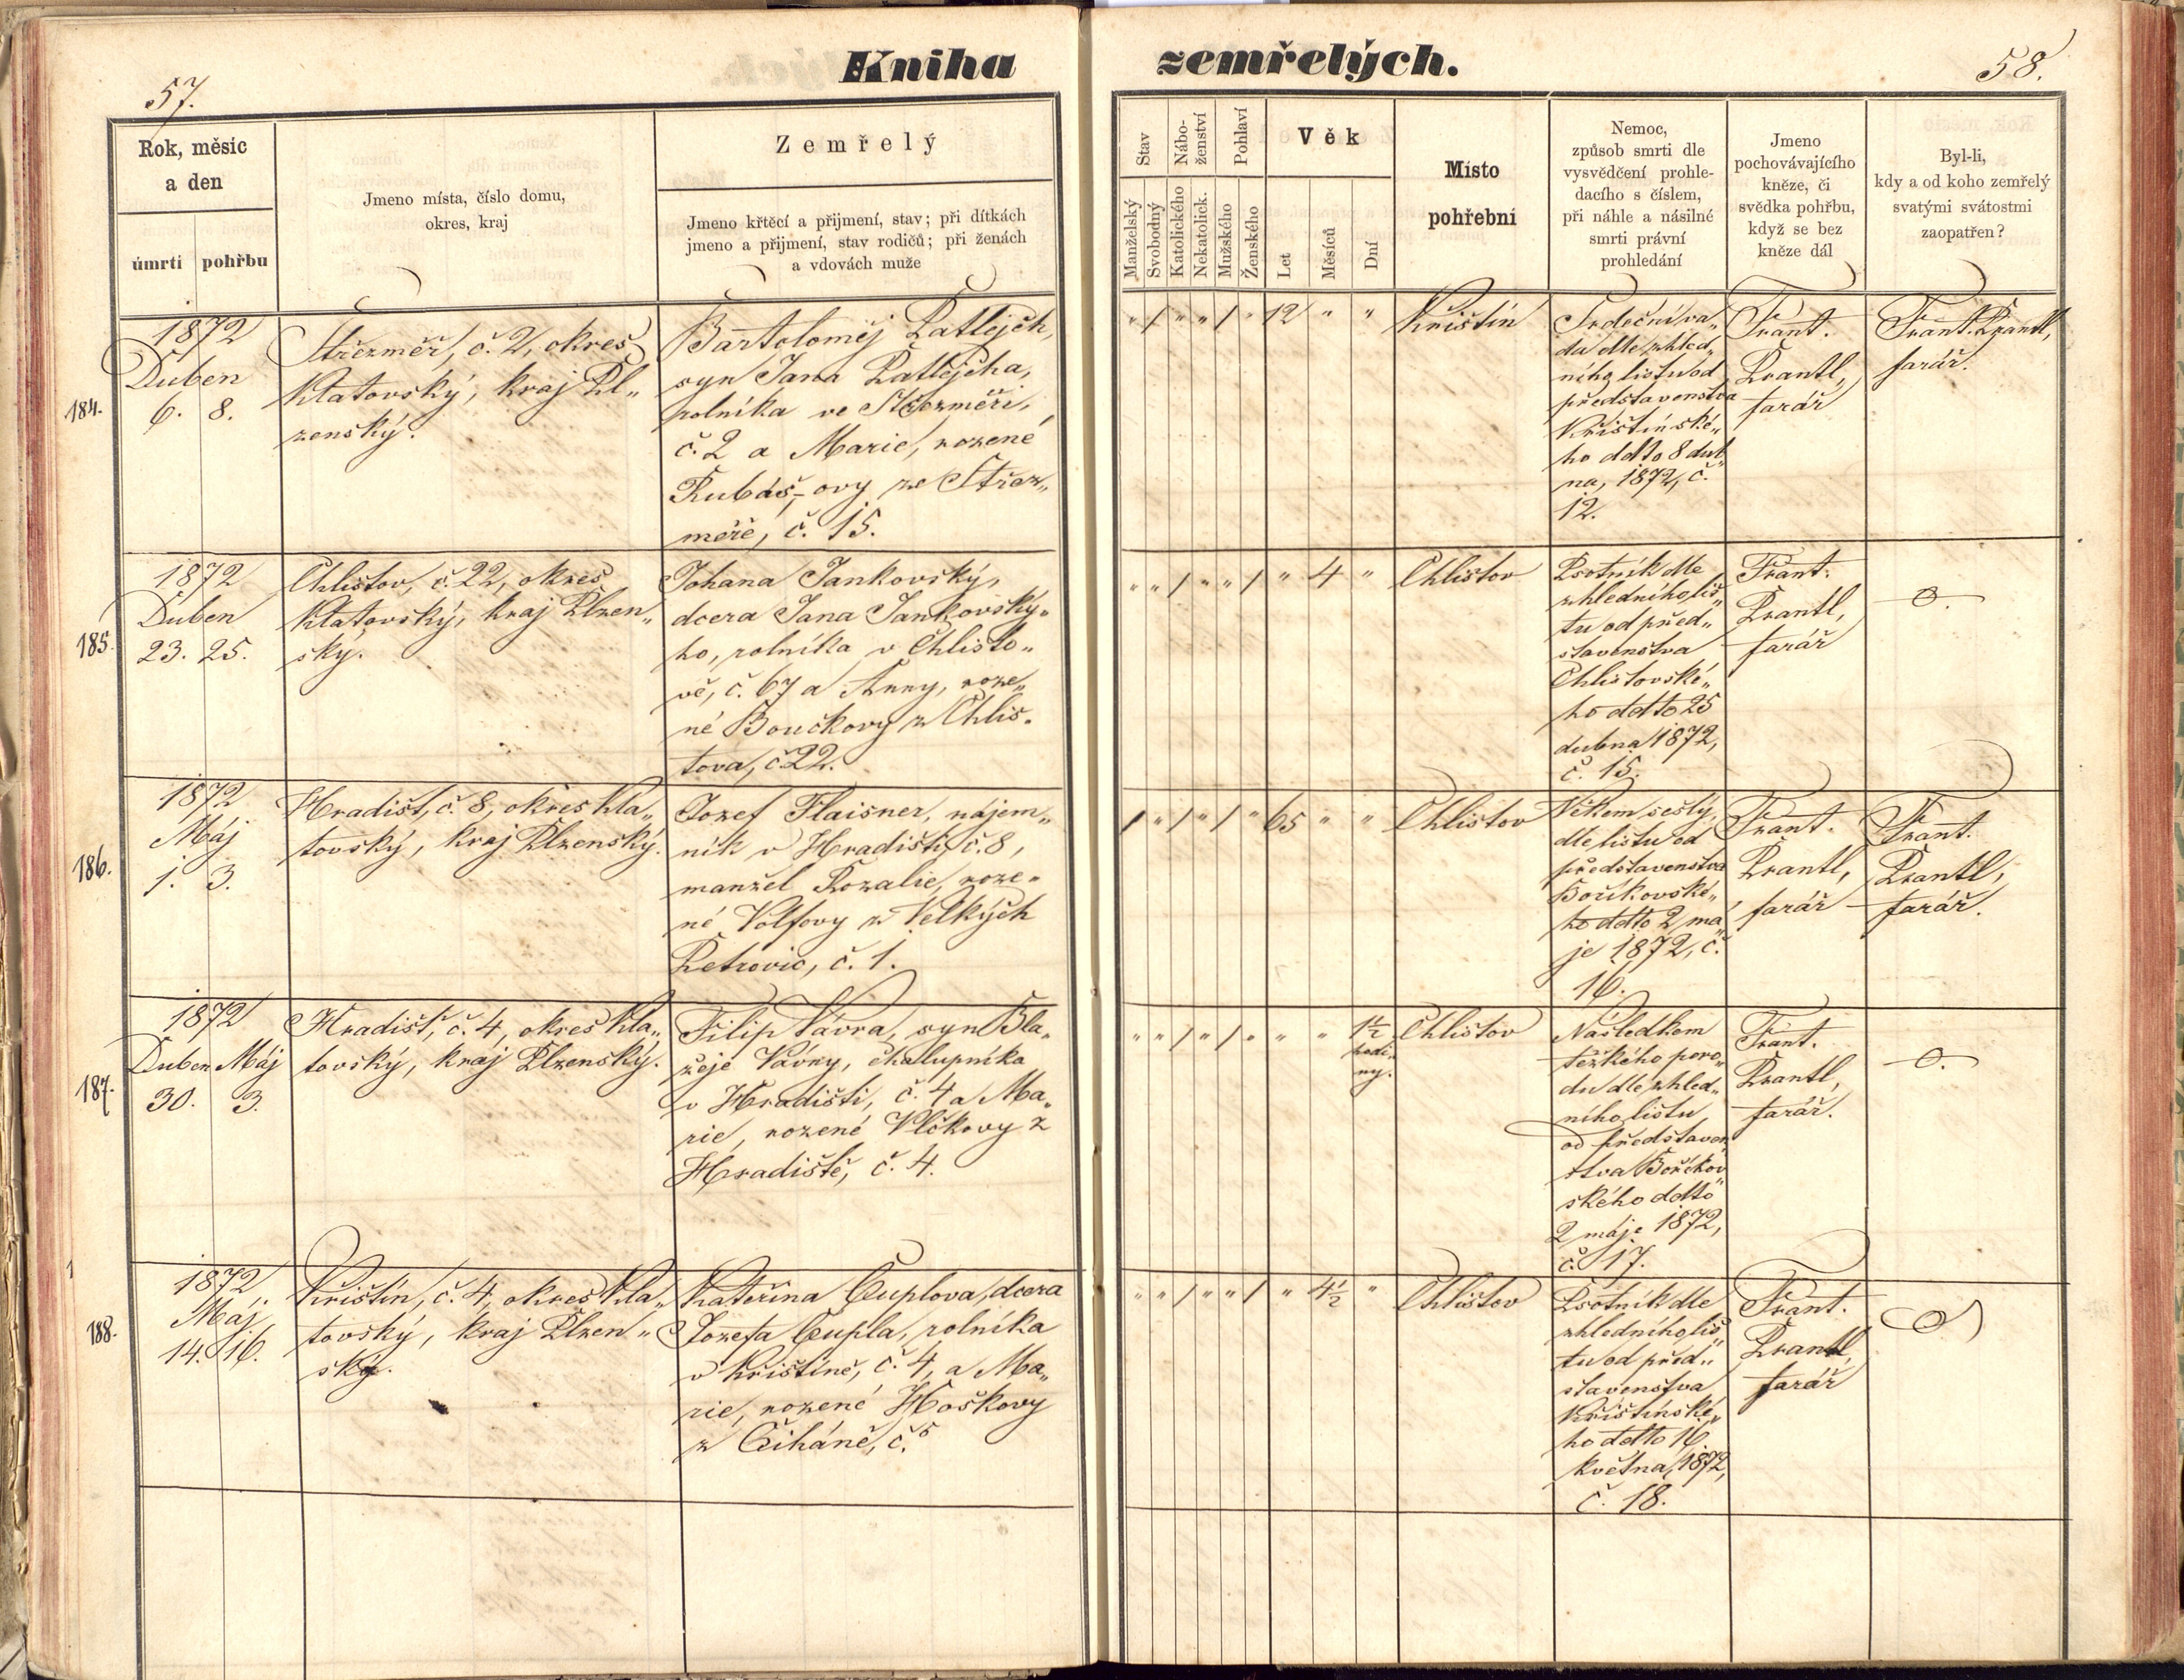 Kniha zemřelých.
57.
58.
Rok, měsíc
a den
úmrtí
pohřbu
Jmeno místa, číslo domu,
okres, kraj
Zemřelý
Jmeno křtěcí a přijmení, stav; při dítkách
jmeno a přijmení, stav rodičů; při ženách
a vdovách muže
Stav
Nábo-
ženství
Pohlaví
Věk
Manželský
Svobodný
Katolického
Nekatolick.
Mužského
Ženského
Let
Měsíců
Dní
Místo
pohřební
Nemoc,
způsob smrti dle
vysvědčení prohle-
dacího s číslem,
při náhle a násilné
smrti právní
prohledání
Jmeno
pochovávajícího
kněze, či
svědka pohřbu,
když se bez
kněze dál
Byl-li,
kdy a od koho zemřelý
svatými svátostmi
zaopatřen?
184.
1872
Duben
6. 8.
Střezměř, č. 2, okres
Klatovský, kraj Pl„
zenský.
Bartoloměj
syn Jana
rolníka ve Střezměři,
č. 2 a Marie, rozené
Rubáš-ovy ze Střez„
měře, č. 15.
" / " " / " 12 " "
Křištín
Srdeční va„
da dle zhled„
ního listu od
představenstva
Křištínské„
ho ddto 8 dub
na, 1872, č.
12.
Frant.
Prantl,
farář
Frant. Prantl,
farář.
185.
1872
Duben
23. 25.
Chlistov, č. 22, okres
Klatovský, kraj Plzen„
ský.
Johana Jankovský,
dcera Jana Jankovský„
ho, rolníka v Chlisto„
vě, č. 67 a Anny, roze„
né Boučkovy z Chlis„
tova, č 22.
" " / " " / " 4 "
Chlistov
Psotník dle
zhledního lis„
tu od před„
stavenstva
Chlistovské„
ho ddto 25
dubna 1872,
č. 15.
Frant.
Prantl,
farář
o.
186.
1872
Máj
1. 3.
Hradišt, č. 8, okres Kla„
tovský, kraj Plzenský.
Jozef Flaisner, nájem„
ník v Hradišti, č. 8,
manžel Rozalie, roze„
né Volfovy z Velkých
Petrovic, č. 1.
/ " / " / " 65 " "
Chlistov
Věkem sešlý,
dle listu od
představenstva
Bořikovské„
ho ddto 2 má„
je 1872, č.
16.
Frant.
Prantl,
farář
Frant.
Prantl,
farář.
187.
1872
Duben Máj
30. 3.
Hradišť, č. 4, okres Kla„
tovský, kraj Plzenský.
Filip Vávra, syn Bla„
žeje Vávry, chalupníka
v Hradišti, č. 4 a Ma„
rie, rozené Vlčkovy z
Hradiště, č. 4.
" " / " / " " " 1½
hodi„
ny.
Chlistov
Následkem
těžkého poro„
du dle zhled„
ního listu
od představen
stva Bořikov„
ského ddto
2 máje 1872,
č. 17.
Frant.
Prantl,
farář.
o.
188.
1872
Máj
14. 16.
Křištín, č. 4, okres Kla„
tovský, kraj Plzen„
ský.
Kateřina Cuplova, dcera
Jozefa Cupla, rolníka
v Křištíně, č. 4, a Ma„
rie, rozené Hoškovy
z Čiháně, č. 5
" " / " " / " 4½ "
Chlistov
Psotník dle
zhledního lis„
tu od před„
stavenstva
Křištínské„
ho ddto 16
května, 1872,
č. 18.
Frant.
Prantl,
farář
o